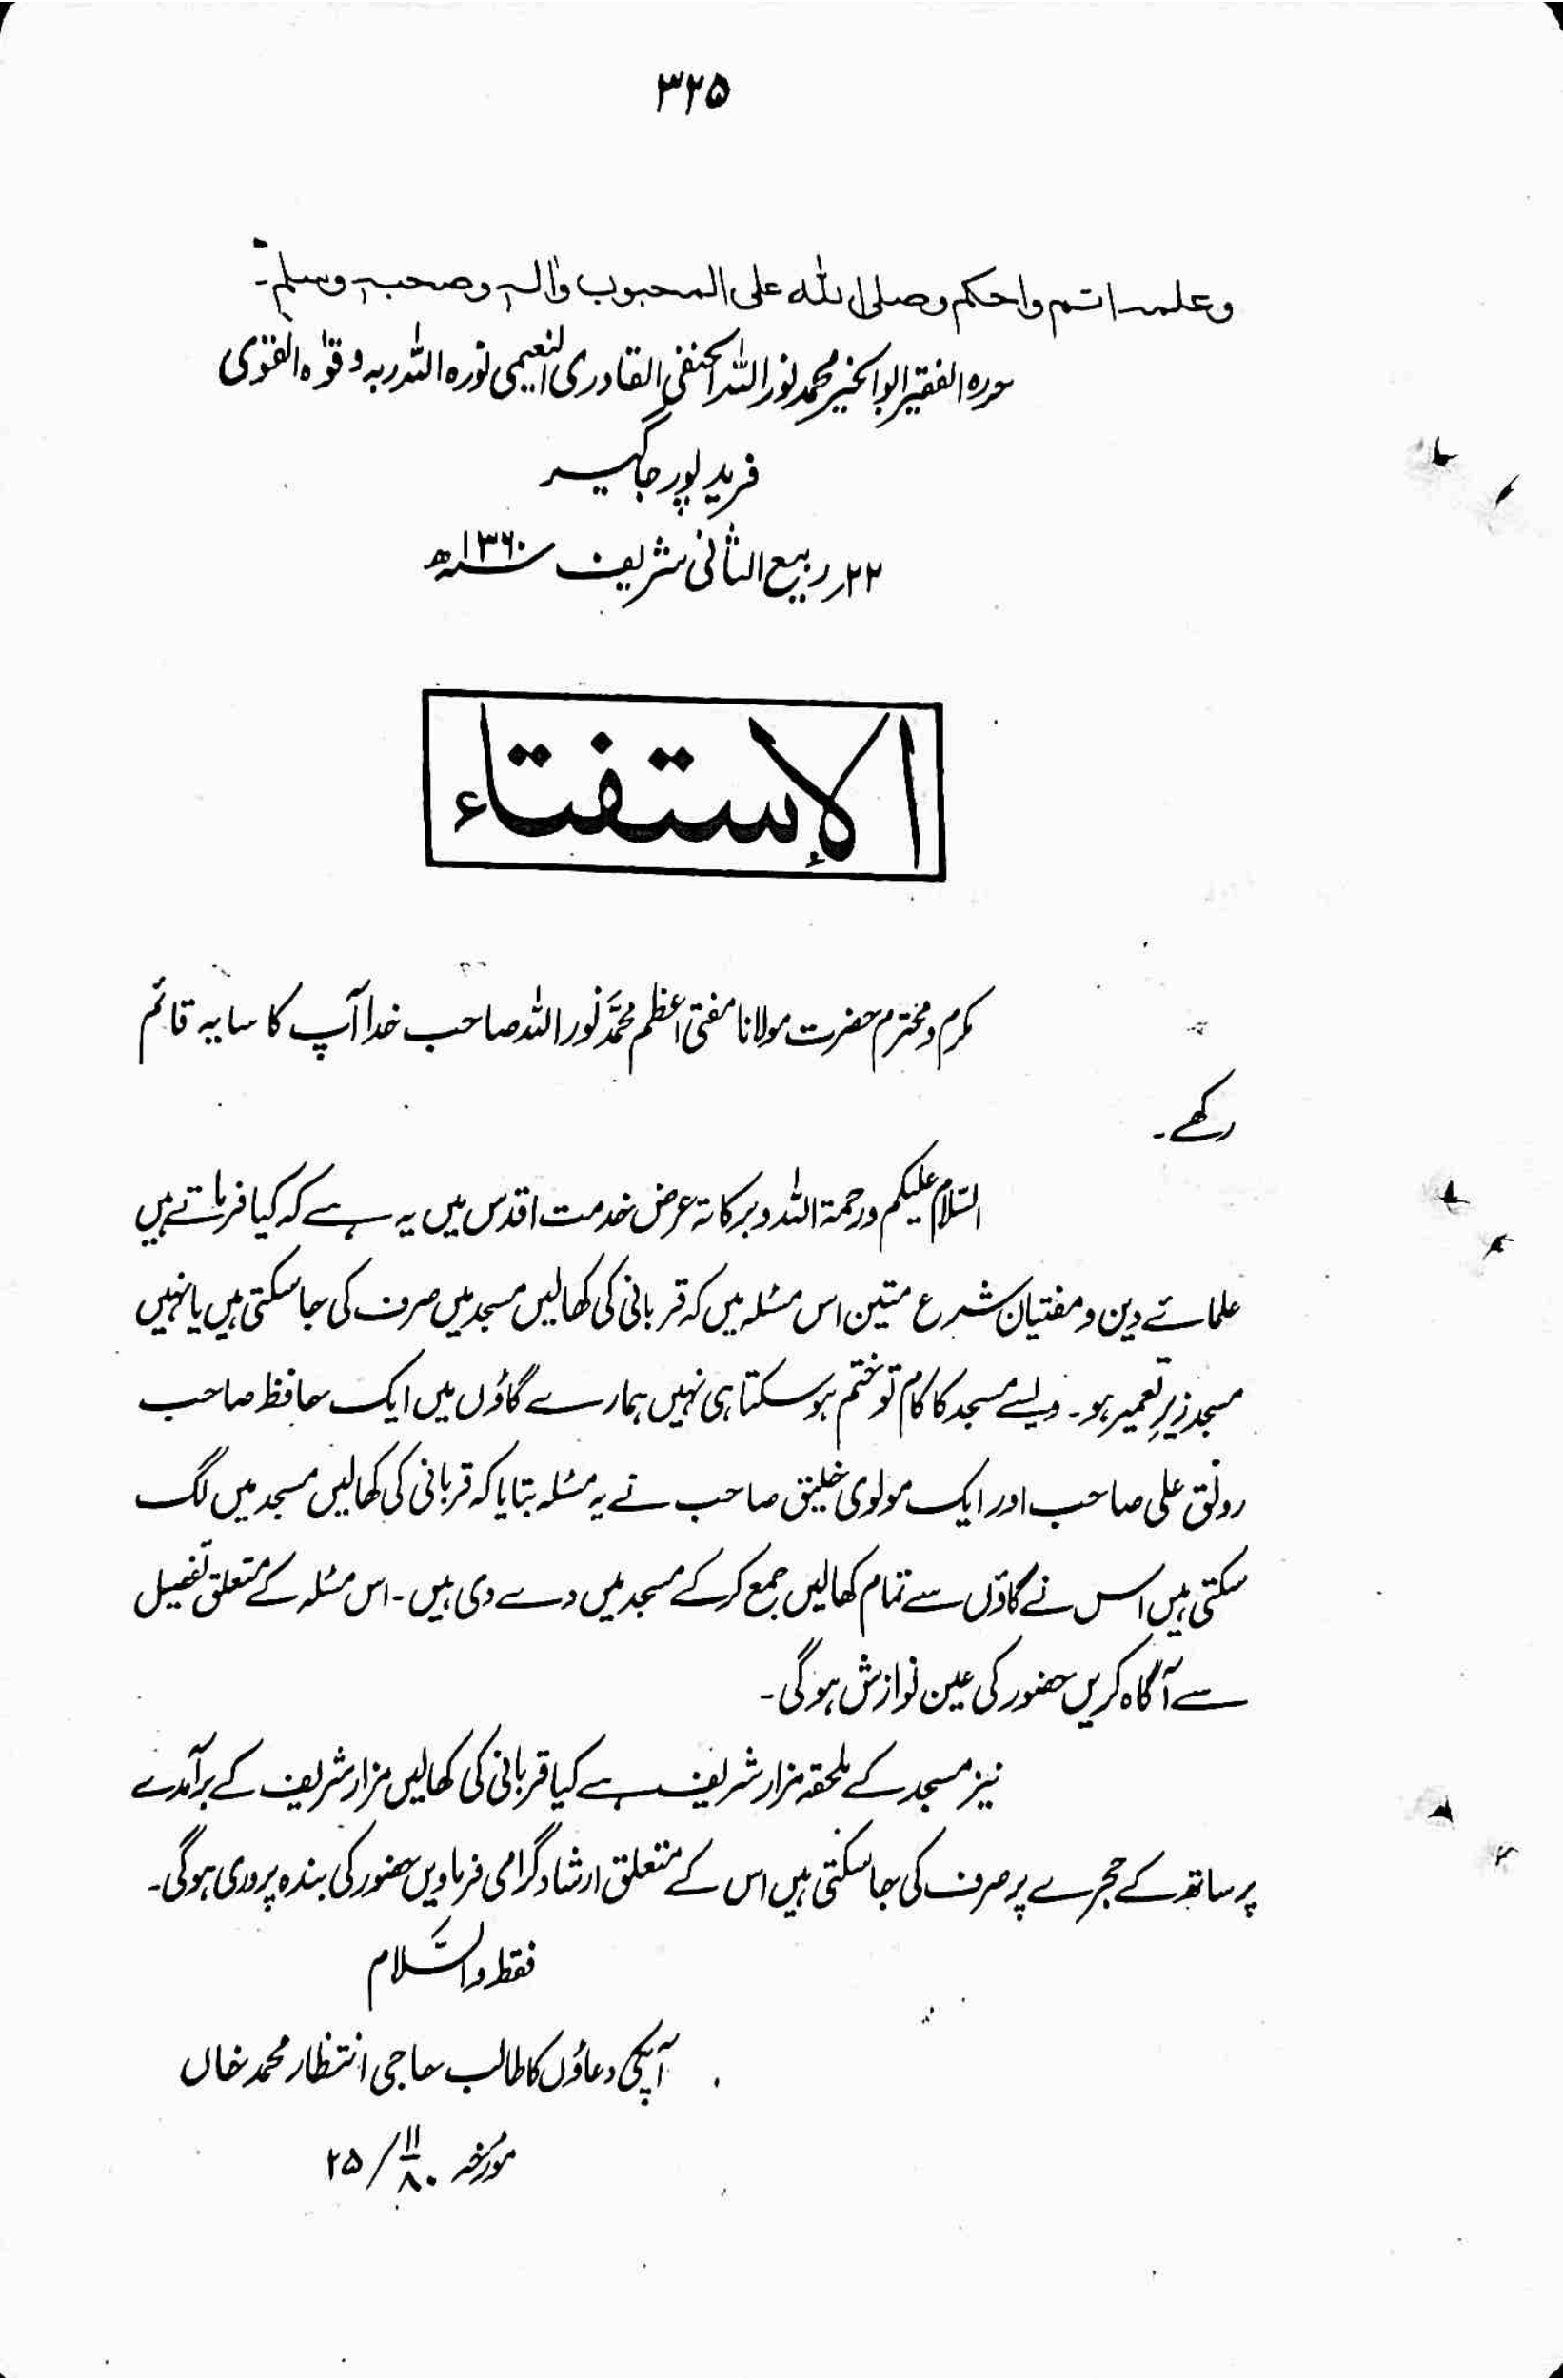 ۳۲۵
وعلمہ اتم واحکم وصلی اللہ علی المحبوب واٰلہٖ وصحبہٖ وسلم۔
حررہ الفقیر ابوالخیر محمد نور اللہ الحنفی القادری النعیمی نورہ اللہ ربہ وقوّاہ القوی
فرید پور جاگیر
۲۲؍ ربیع الثانی شریف ۱۳۶۰ھ
الاستفتاء
مکرم و محترم حضرت مولانا مفتی اعظم محمّد نور اللہ صاحب خدا آپ کا سایہ قائم
رکھے۔
السّلام علیکم ورحمۃ اللہ وبرکاتہ عرض خدمت اقدس میں یہ ہے کہ کیا فرماتے ہیں
علمائے دین و مفتیان شرع متین اس مسئلہ میں کہ قربانی کی کھالیں مسجد میں صرف کی جا سکتی ہیں یا نہیں
مسجد زیرِ تعمیر ہو۔ ویسے مسجد کا کام تو ختم ہو سکتا ہی نہیں ہمارے گاؤں میں ایک حافظ صاحب
رونق علی صاحب اور ایک مولوی خلیق صاحب نے یہ مسئلہ بتایا کہ قربانی کی کھالیں مسجد میں لگ
سکتی ہیں اس نے گاؤں سے تمام کھالیں جمع کر کے مسجد میں دے دی ہیں۔ اس مسئلہ کے متعلق تفصیل
سے آگاہ کریں حضور کی عین نوازش ہوگی۔
نیز مسجد کے ملحقہ مزار شریف ہے کیا قربانی کی کھالیں مزار شریف کے برآمدے
پر ساتھ کے حجرے پر صرف کی جا سکتی ہیں اس کے متعلق ارشاد گرامی فرماویں حضور کی بندہ پروری ہوگی۔
فقط والسّلام
آپکی دعاؤں کا طالب حاجی انتظار محمد خاں
مورخہ ۲۵/۱۱/۸۰